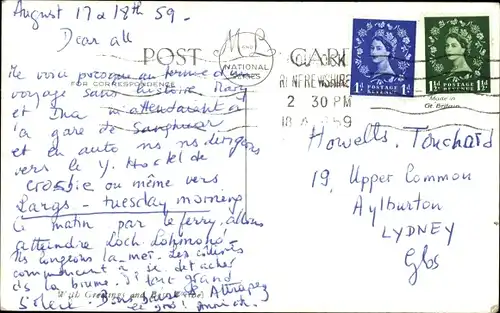 August 17 & 18th 59.
Dear all
POST CARD
M and L
NATIONAL SERIES
FOR CORRESPONDENCE
RENFREWSHIRE
2 30 PM
1D 1D
POSTAGE REVENUE
1½D 1½D
POSTAGE REVENUE
Made in
Gt Britain
Me voici presque au terme du
voyage sans histoire Mary
et Ina m'attendaient à
la gare de
et en auto ns ns dirigeons
vers le Y. Hostel de
Crosbie ou même vers
Largs - tuesday morning
Ce matin par le ferry, allons
atteindre Loch Lohmond
Ns longeons la mer. Les
commencent à se détacher
de la brume. Il fait grand
soleil. Attrapez
ce gros!
With Greetings and
Howells. Touchard
19, Upper Common
Aylburton
LYDNEY
Glos